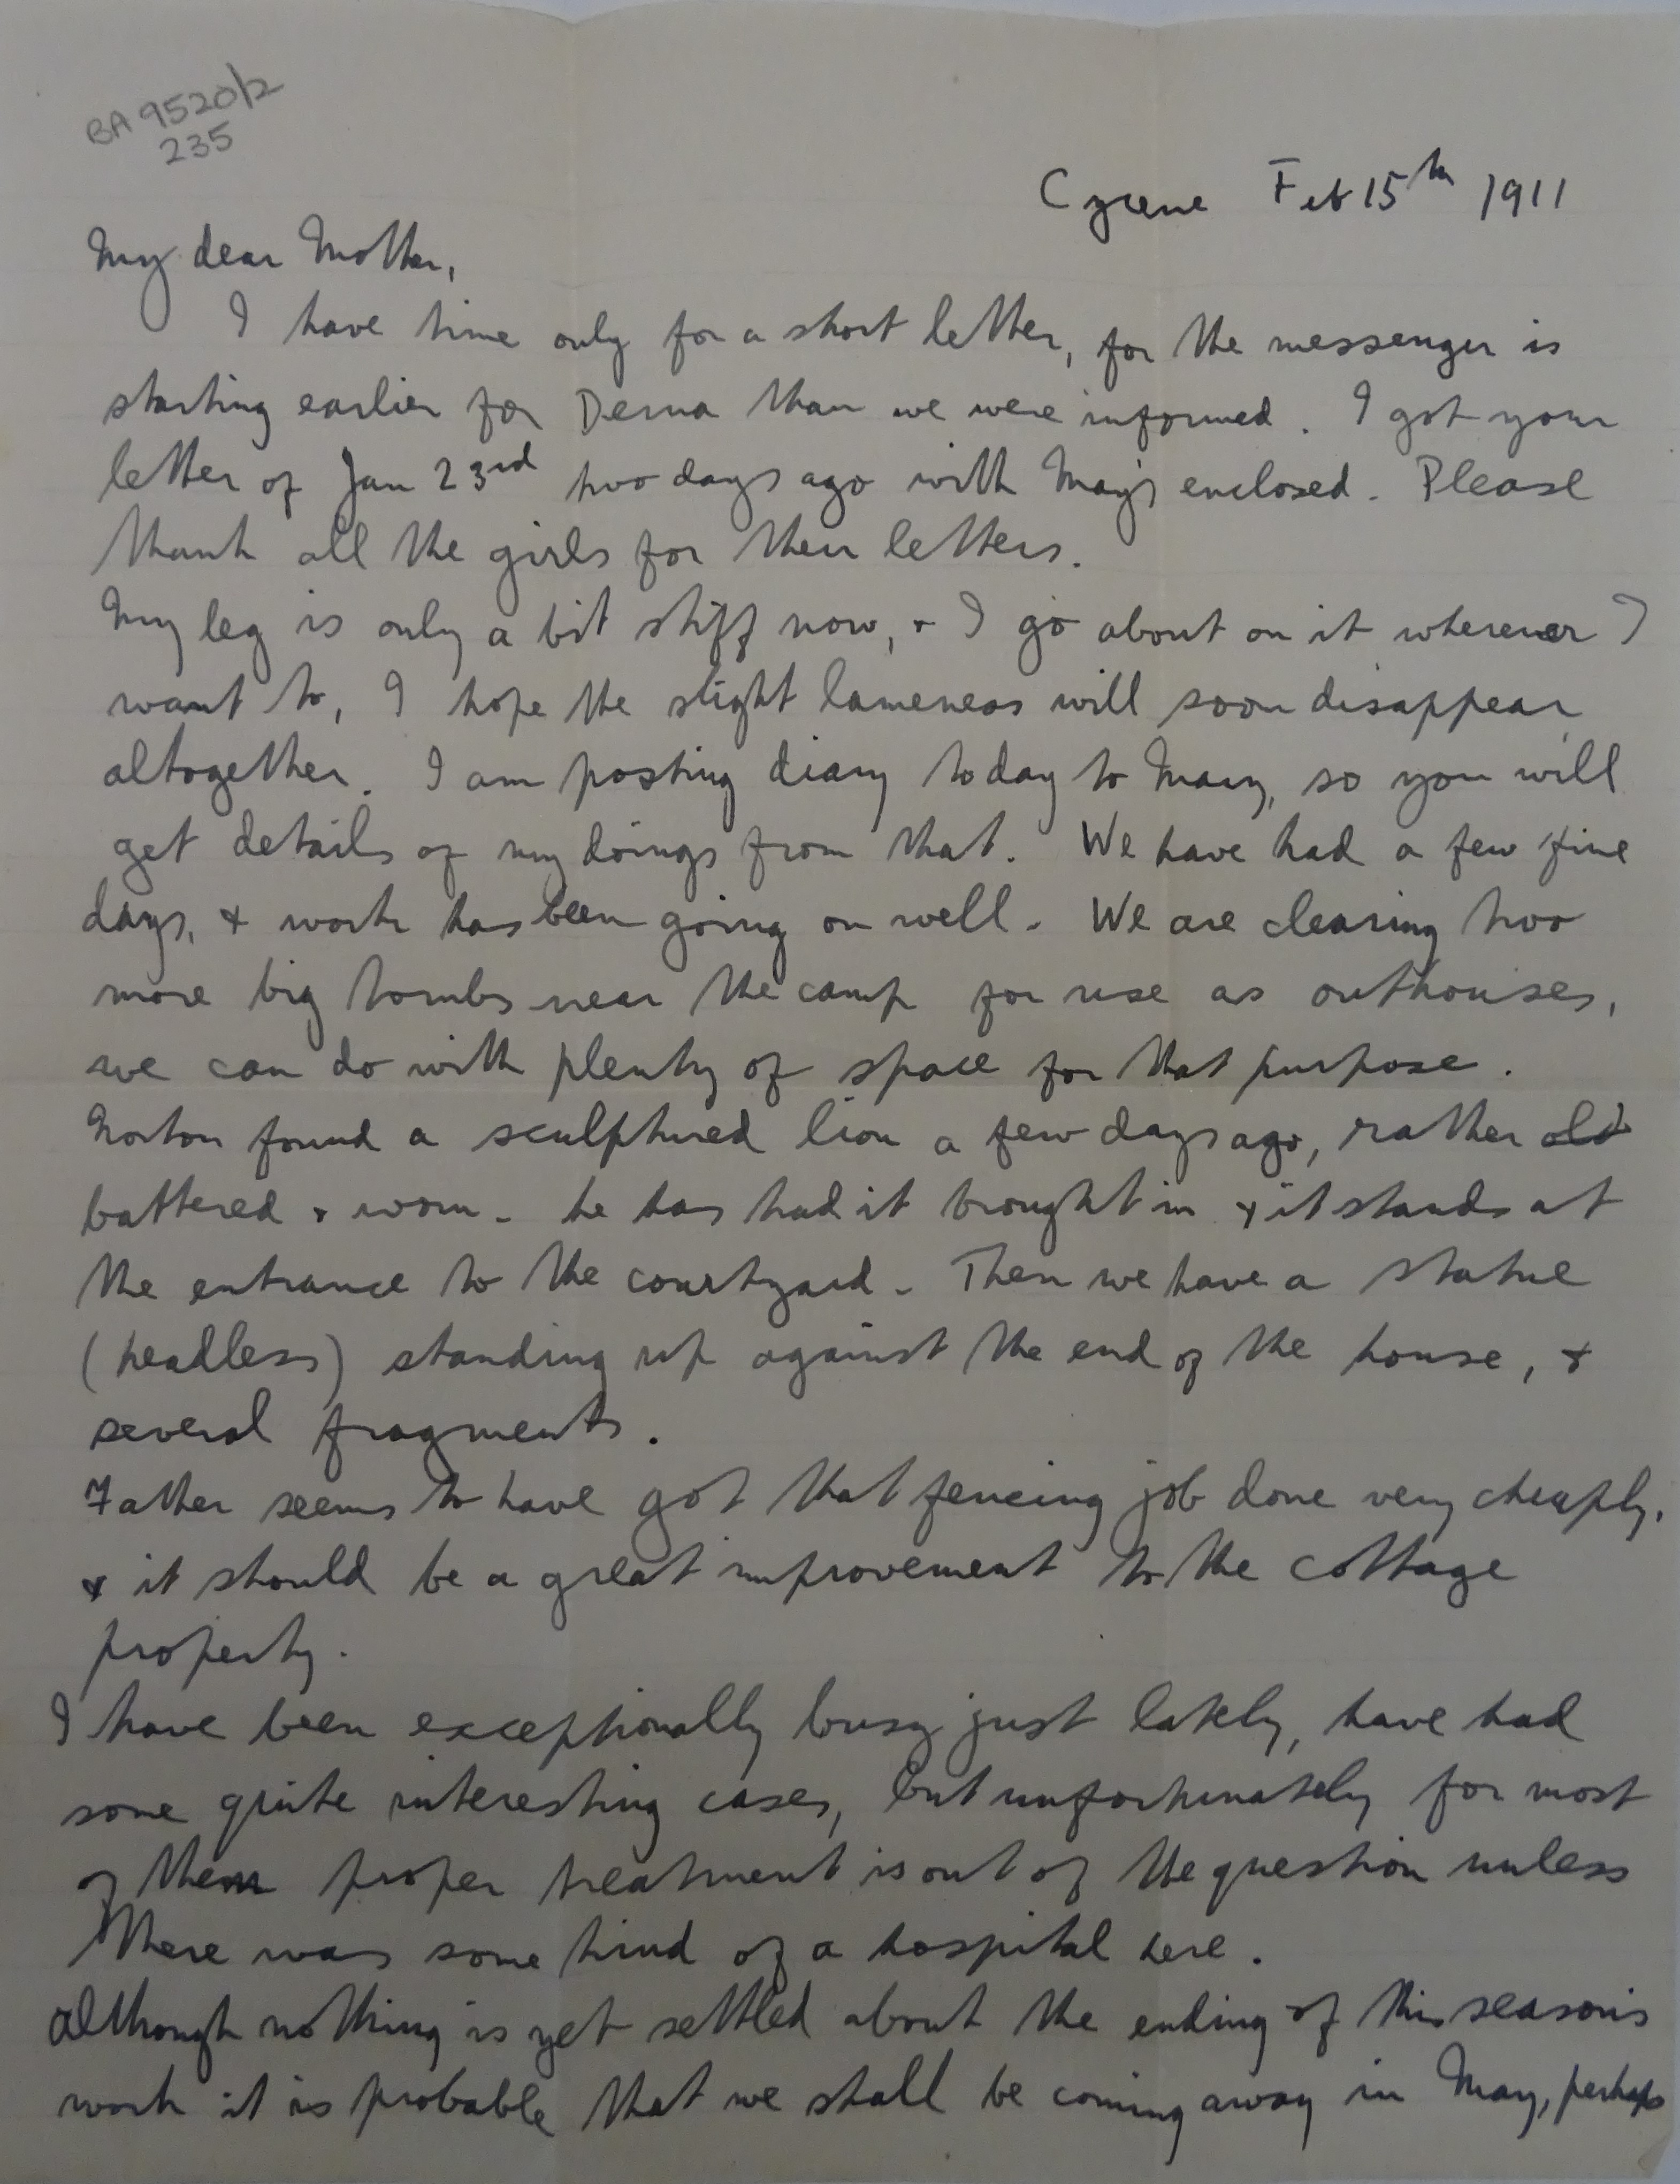 BA 9520/2
235
Cyrene Feb 15th 1911
My dear Mother,
I have time only for a short letter, for the messenger is
starting earlier for Derna than we were informed. I got your
letter of Jan 23rd two days ago with May's enclosed. Please
thank all the girls for their letters.
My leg is only a bit stiff now, & I go about on it wherever I
want to, I hope the slight lameness will soon disappear
altogether. I am posting diary today to Mary, so you will
get details of my doings from that. We have had a few fine
days, & work has been going on well. We are clearing two
more big tombs near the camp for use as outhouses,
we can do with plenty of space for that purpose.
Norton found a sculptured lion a few days ago, rather old
battered & worn - he has had it brought in & it stands at
the entrance to the courtyard - Then we have a statue
(headless) standing up against the end of the house, &
several fragments.
Father seems to have got that fencing job done very cheaply,
& it should be a great improvement to the cottage
property.
I have been exceptionally busy just lately, have had
some quite interesting cases, but unfortunately for most
of them proper treatment is out of the question unless
there was some kind of a hospital here.
Although nothing is yet settled about the ending of this season's
work it is probable that we shall be coming away in May, perhaps